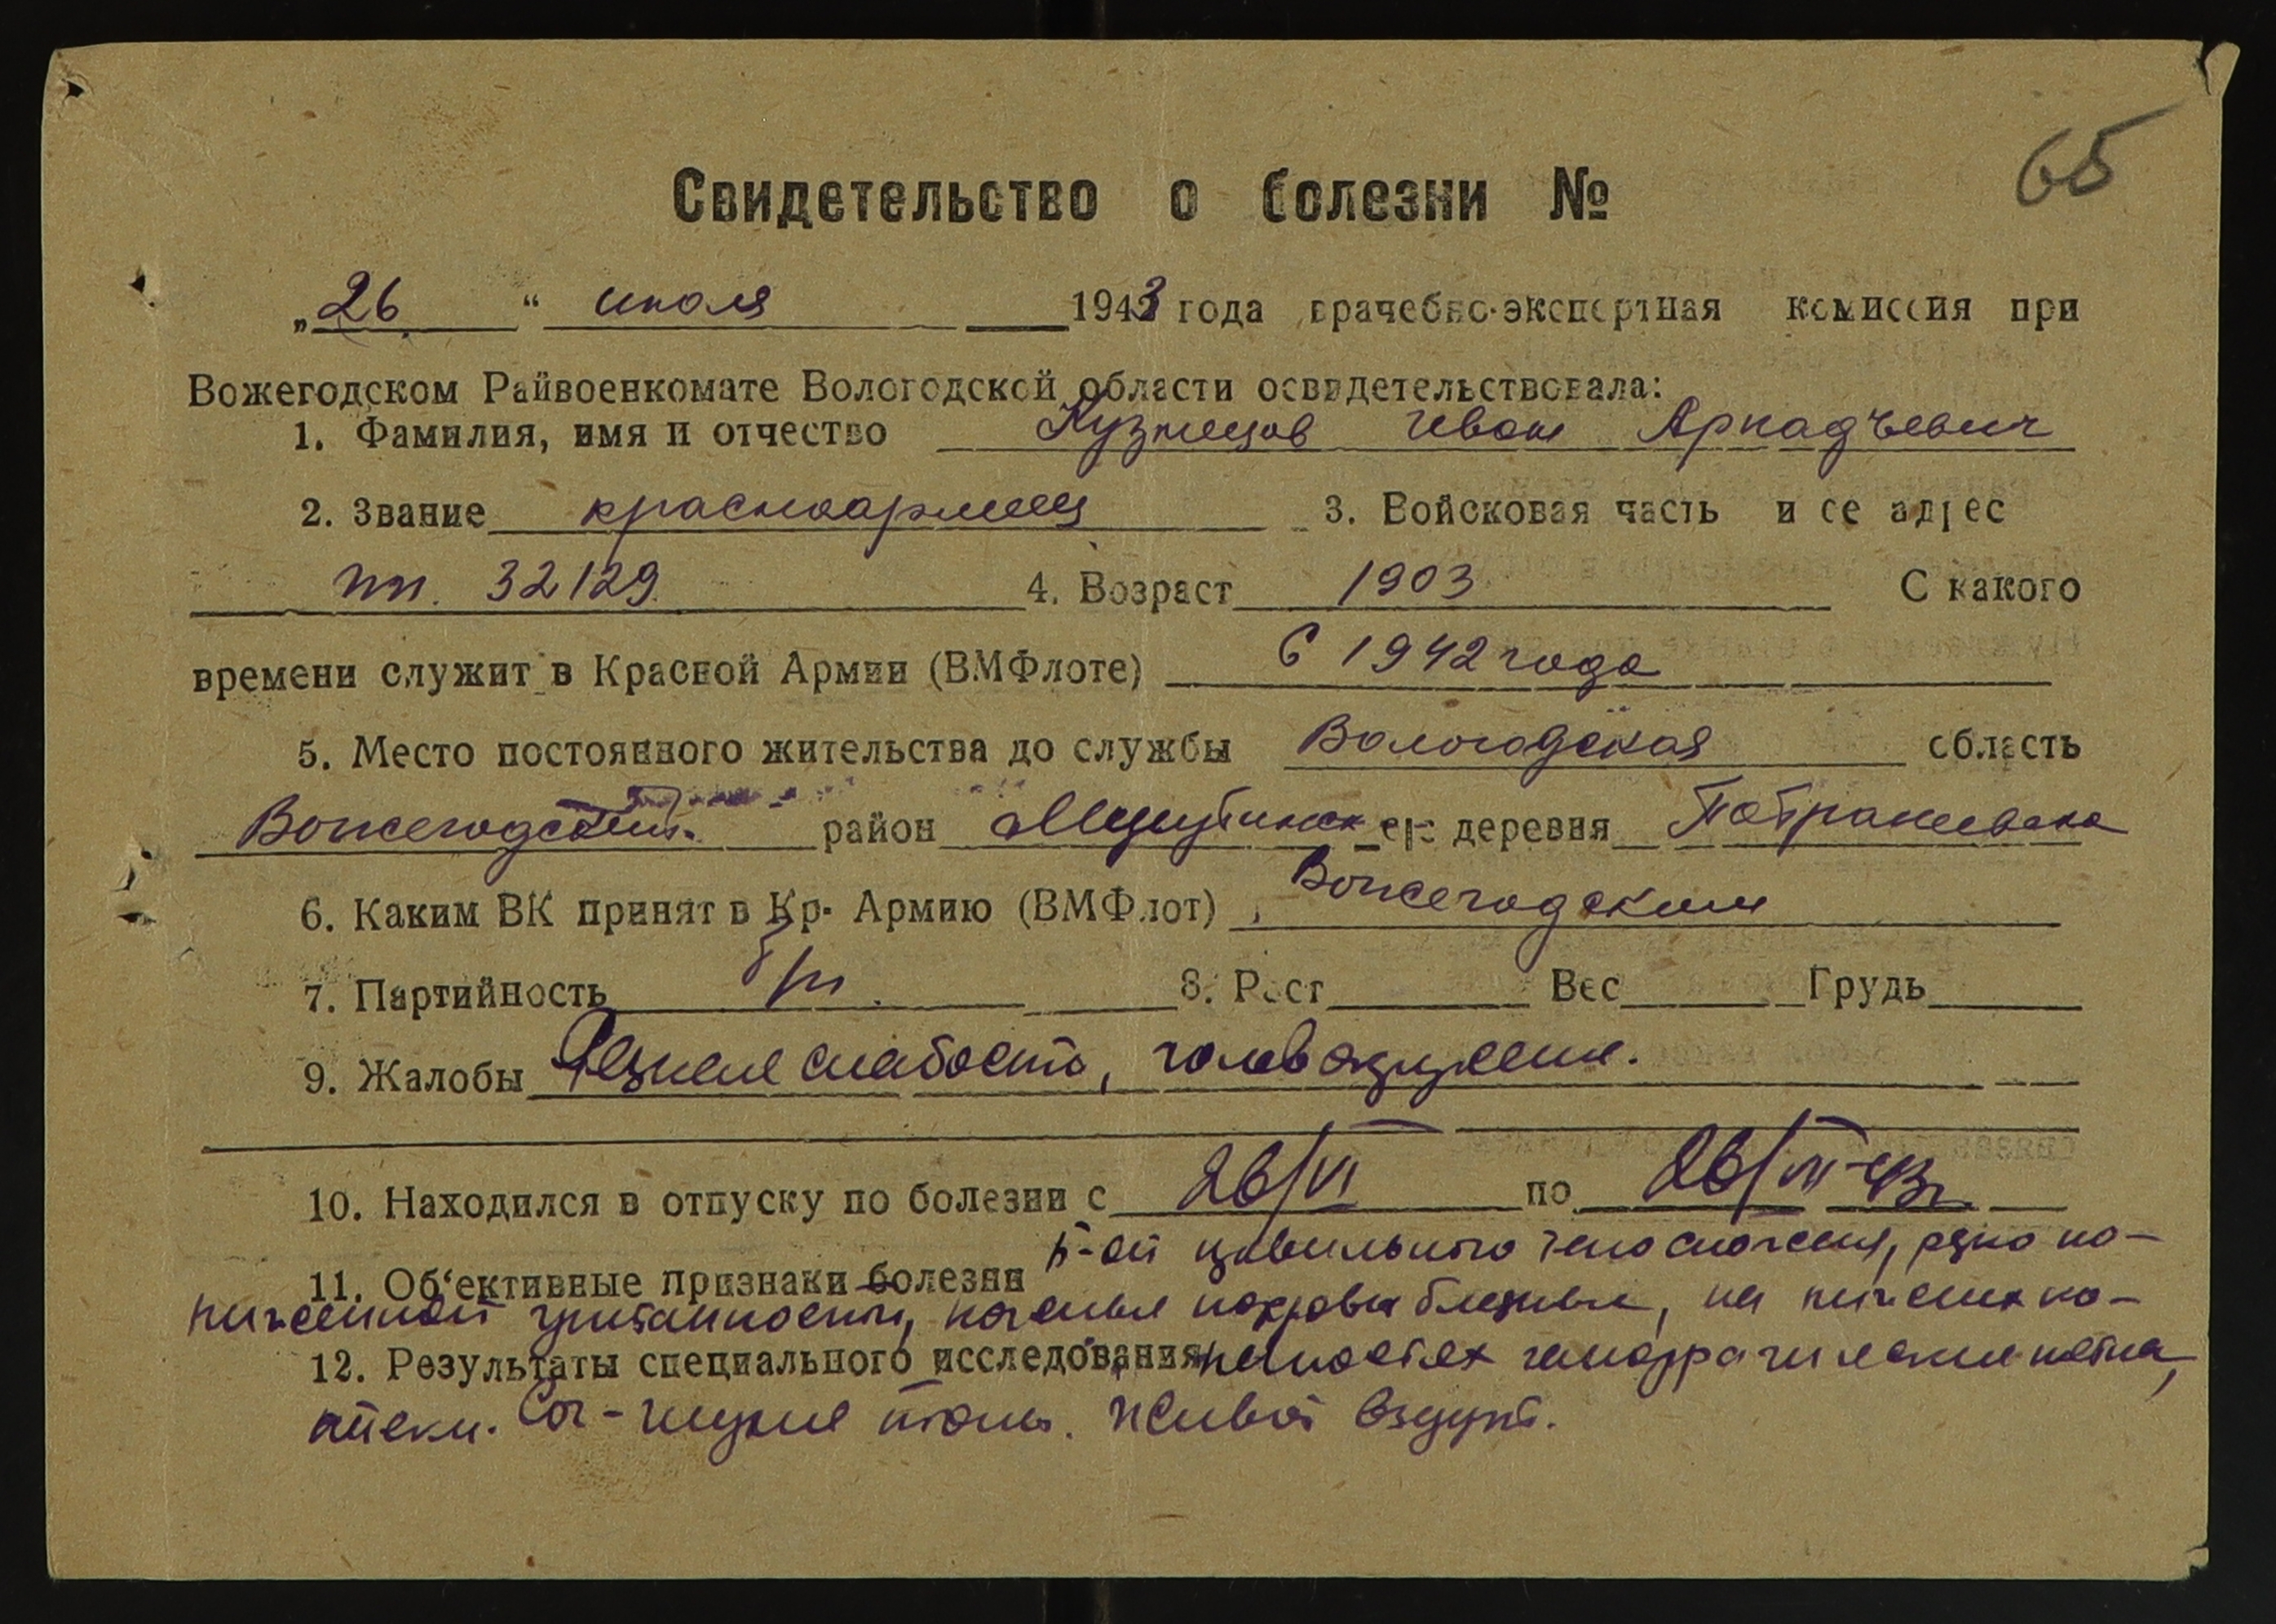 65
Свидетельство о болезни №
„26“ июля 1943 года врачебно-экспертная комиссия при
Вожегодском Райвоенкомате Вологодской области освидетельствовала:
1. Фамилия, имя и отчество Кузнецов Иван Аркадьевич
2. Звание красноармеец 3. Войсковая часть и ее адрес
пп. 32129 4. Возраст 1903 С какого
времени служит в Красной Армии (ВМФлоте) С 1942 года
5. Место постоянного жительства до службы Вологодская область
Вожегодский район деревня
6. Каким ВК принят в Кр. Армию (ВМФлот) Вожегодским
7. Партийность б/п 8. Рост Вес Грудь
9. Жалобы Резкая слабость, головокружение.
10. Находился в отпуску по болезни с 26/VI по 26/VII-43г
11. Об'ективные признаки болезни Б-ой правильного телосложения, резко по-
ниженной упитанности, кожные покровы бледные, на нижних ко-
12. Результаты специального исследования нечностях геморрагические пятна,
отеки. Сог-глухие тоны. Живот вздут.